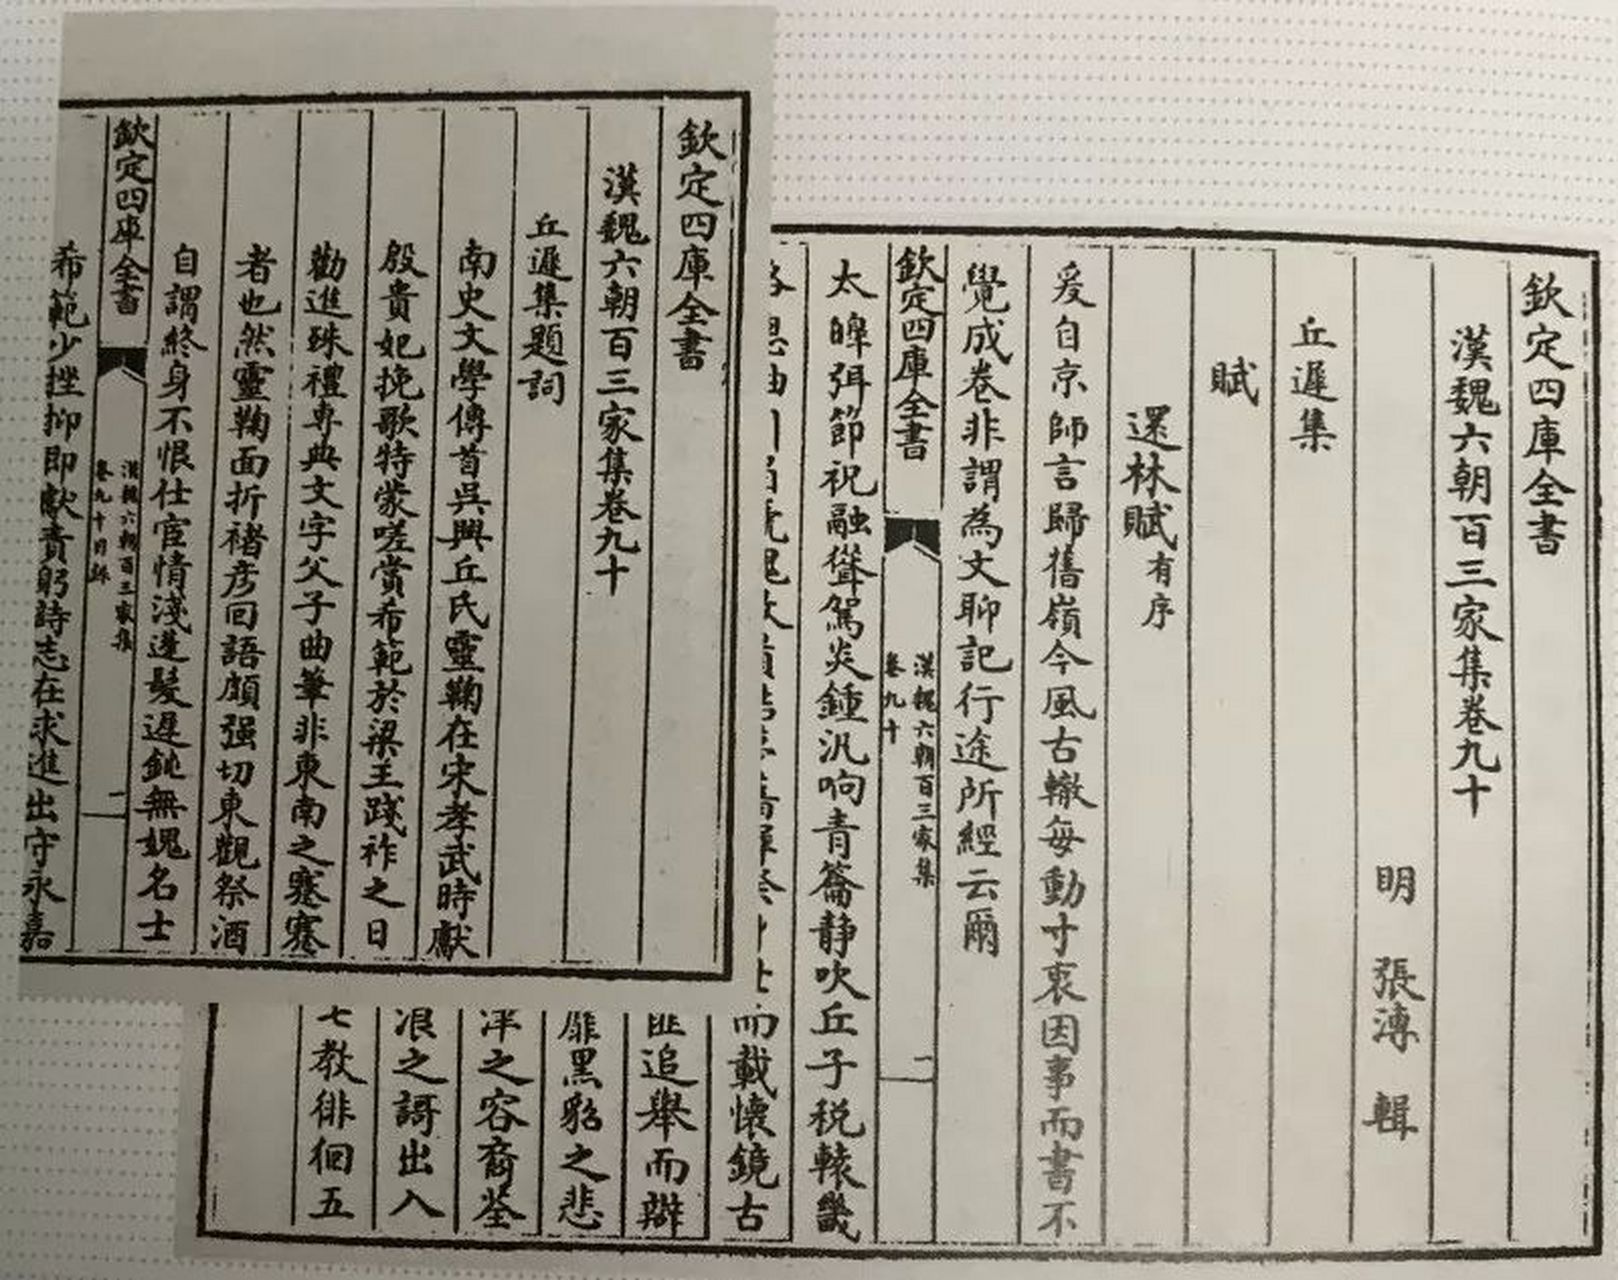 欽定四庫全書
漢魏六朝百三家集卷九十
丘遲集題詞
南史文學傳首吳興丘氏靈鞠在宋孝武時獻
殷貴妃挽歌特蒙嗟賞希範於梁王踐祚之日
勸進殊禮專典文字父子曲筆非東南之蹇蹇
者也然靈鞠面折褚彥回語頗强切東觀祭酒
自謂終身不恨仕宦情淺蓬髮遲鈍無媿名士
欽定四庫全書
漢魏六朝百三家集
卷九十目錄
一
希範少挫抑即獻責躬詩志在求進出守永嘉
欽定四庫全書
漢魏六朝百三家集卷九十
明 張溥 輯
丘遲集
賦
還林賦有序
爰自京師言歸舊嶺今風古轍每動寸衷因事而書不
覺成卷非謂為文聊記行途所經云爾
欽定四庫全書
漢魏六朝百三家集
卷九十
一
太皞弭節祝融聳駕炎鍾汎响青籥静吹丘子税轅畿
而載懷鏡古
追舉而辯
黑貂之悲
之容裔荃
浪之謌出入
七教徘徊五